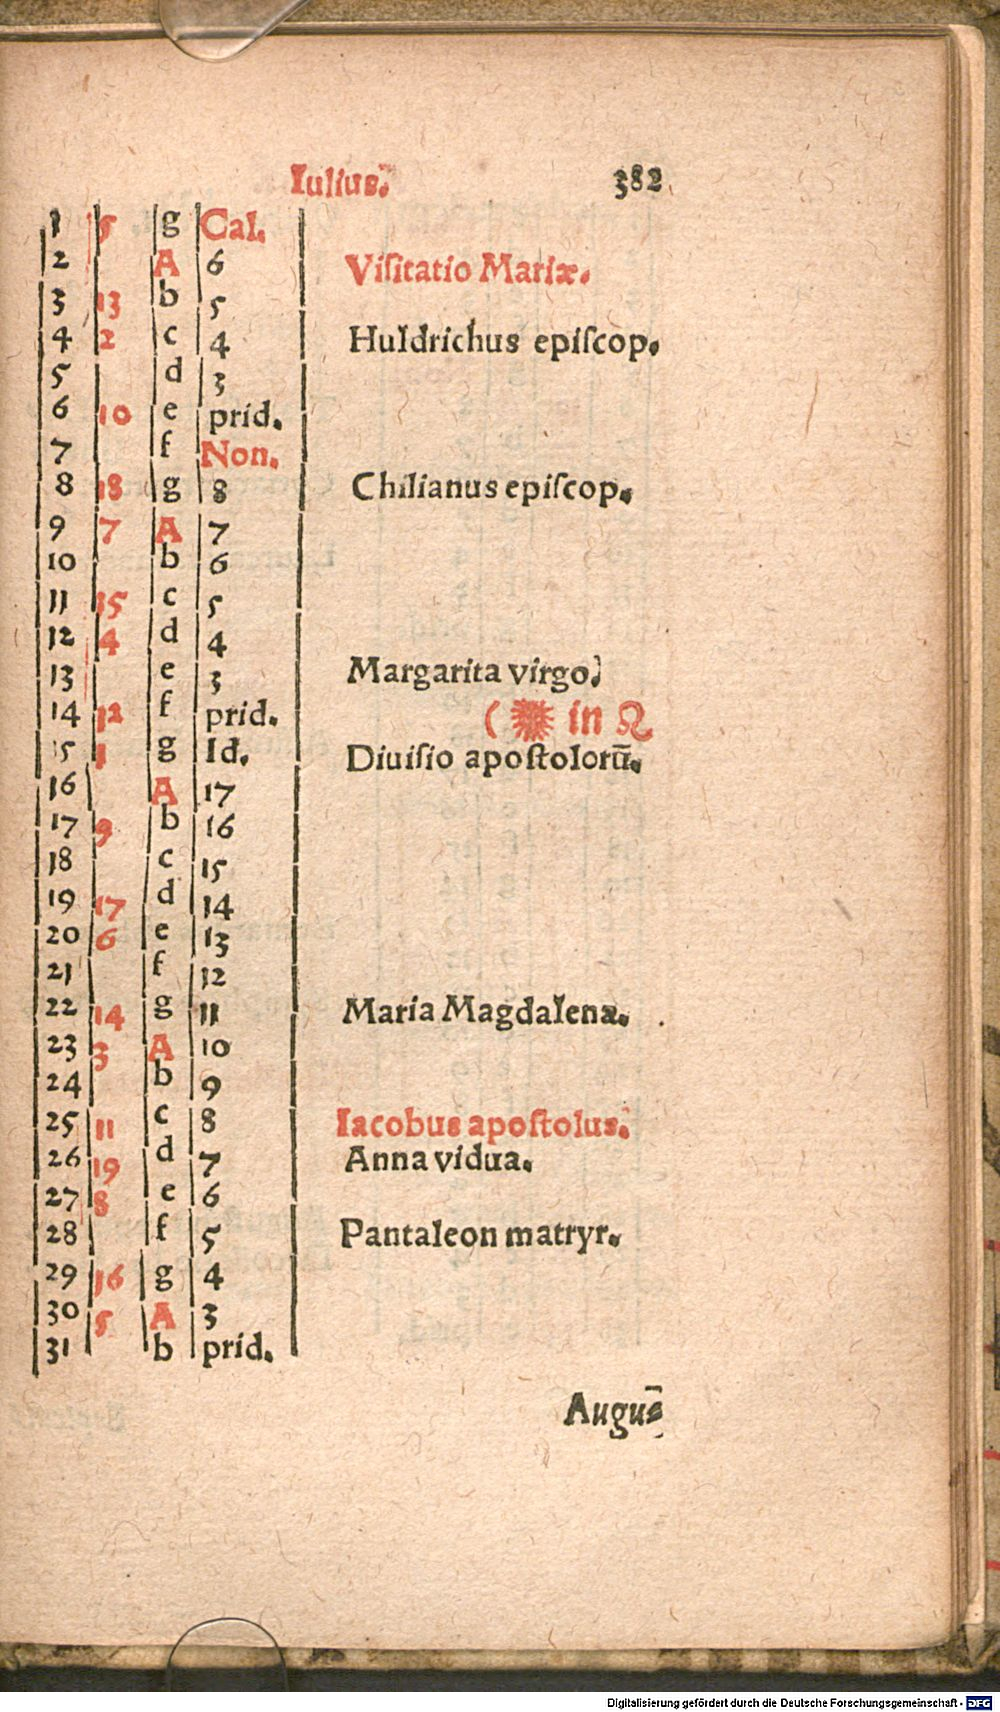 Iulius. 382
1 5 g Cal.
2 A 6 Viſitatio Mariæ.
3 13 b 5
4 2 c 4 Huldrichus epiſcop.
5 d 3
6 10 e prid.
7 f Non.
8 18 g 8 Chilianus epiſcop.
9 7 A 7
10 b 6
11 15 c 5
12 4 d 4
13 e 3 Margarita virgo.
14 12 f prid. ( ☀ in ♌
15 1 g Id. Diuiſio apoſtolorū.
16 A 17
17 9 b 16
18 c 15
19 17 d 14
20 6 e 13
21 f 12
22 14 g 11 Maria Magdalenæ.
23 3 A 10
24 b 9
25 11 c 8 Iacobus apoſtolus.
26 19 d 7 Anna vidua.
27 8 e 6
28 f 5 Pantaleon matryr.
29 16 g 4
30 5 A 3
31 b prid.
Augu⸗
Digitalisierung gefördert durch die Deutsche Forschungsgemeinschaft - DFG